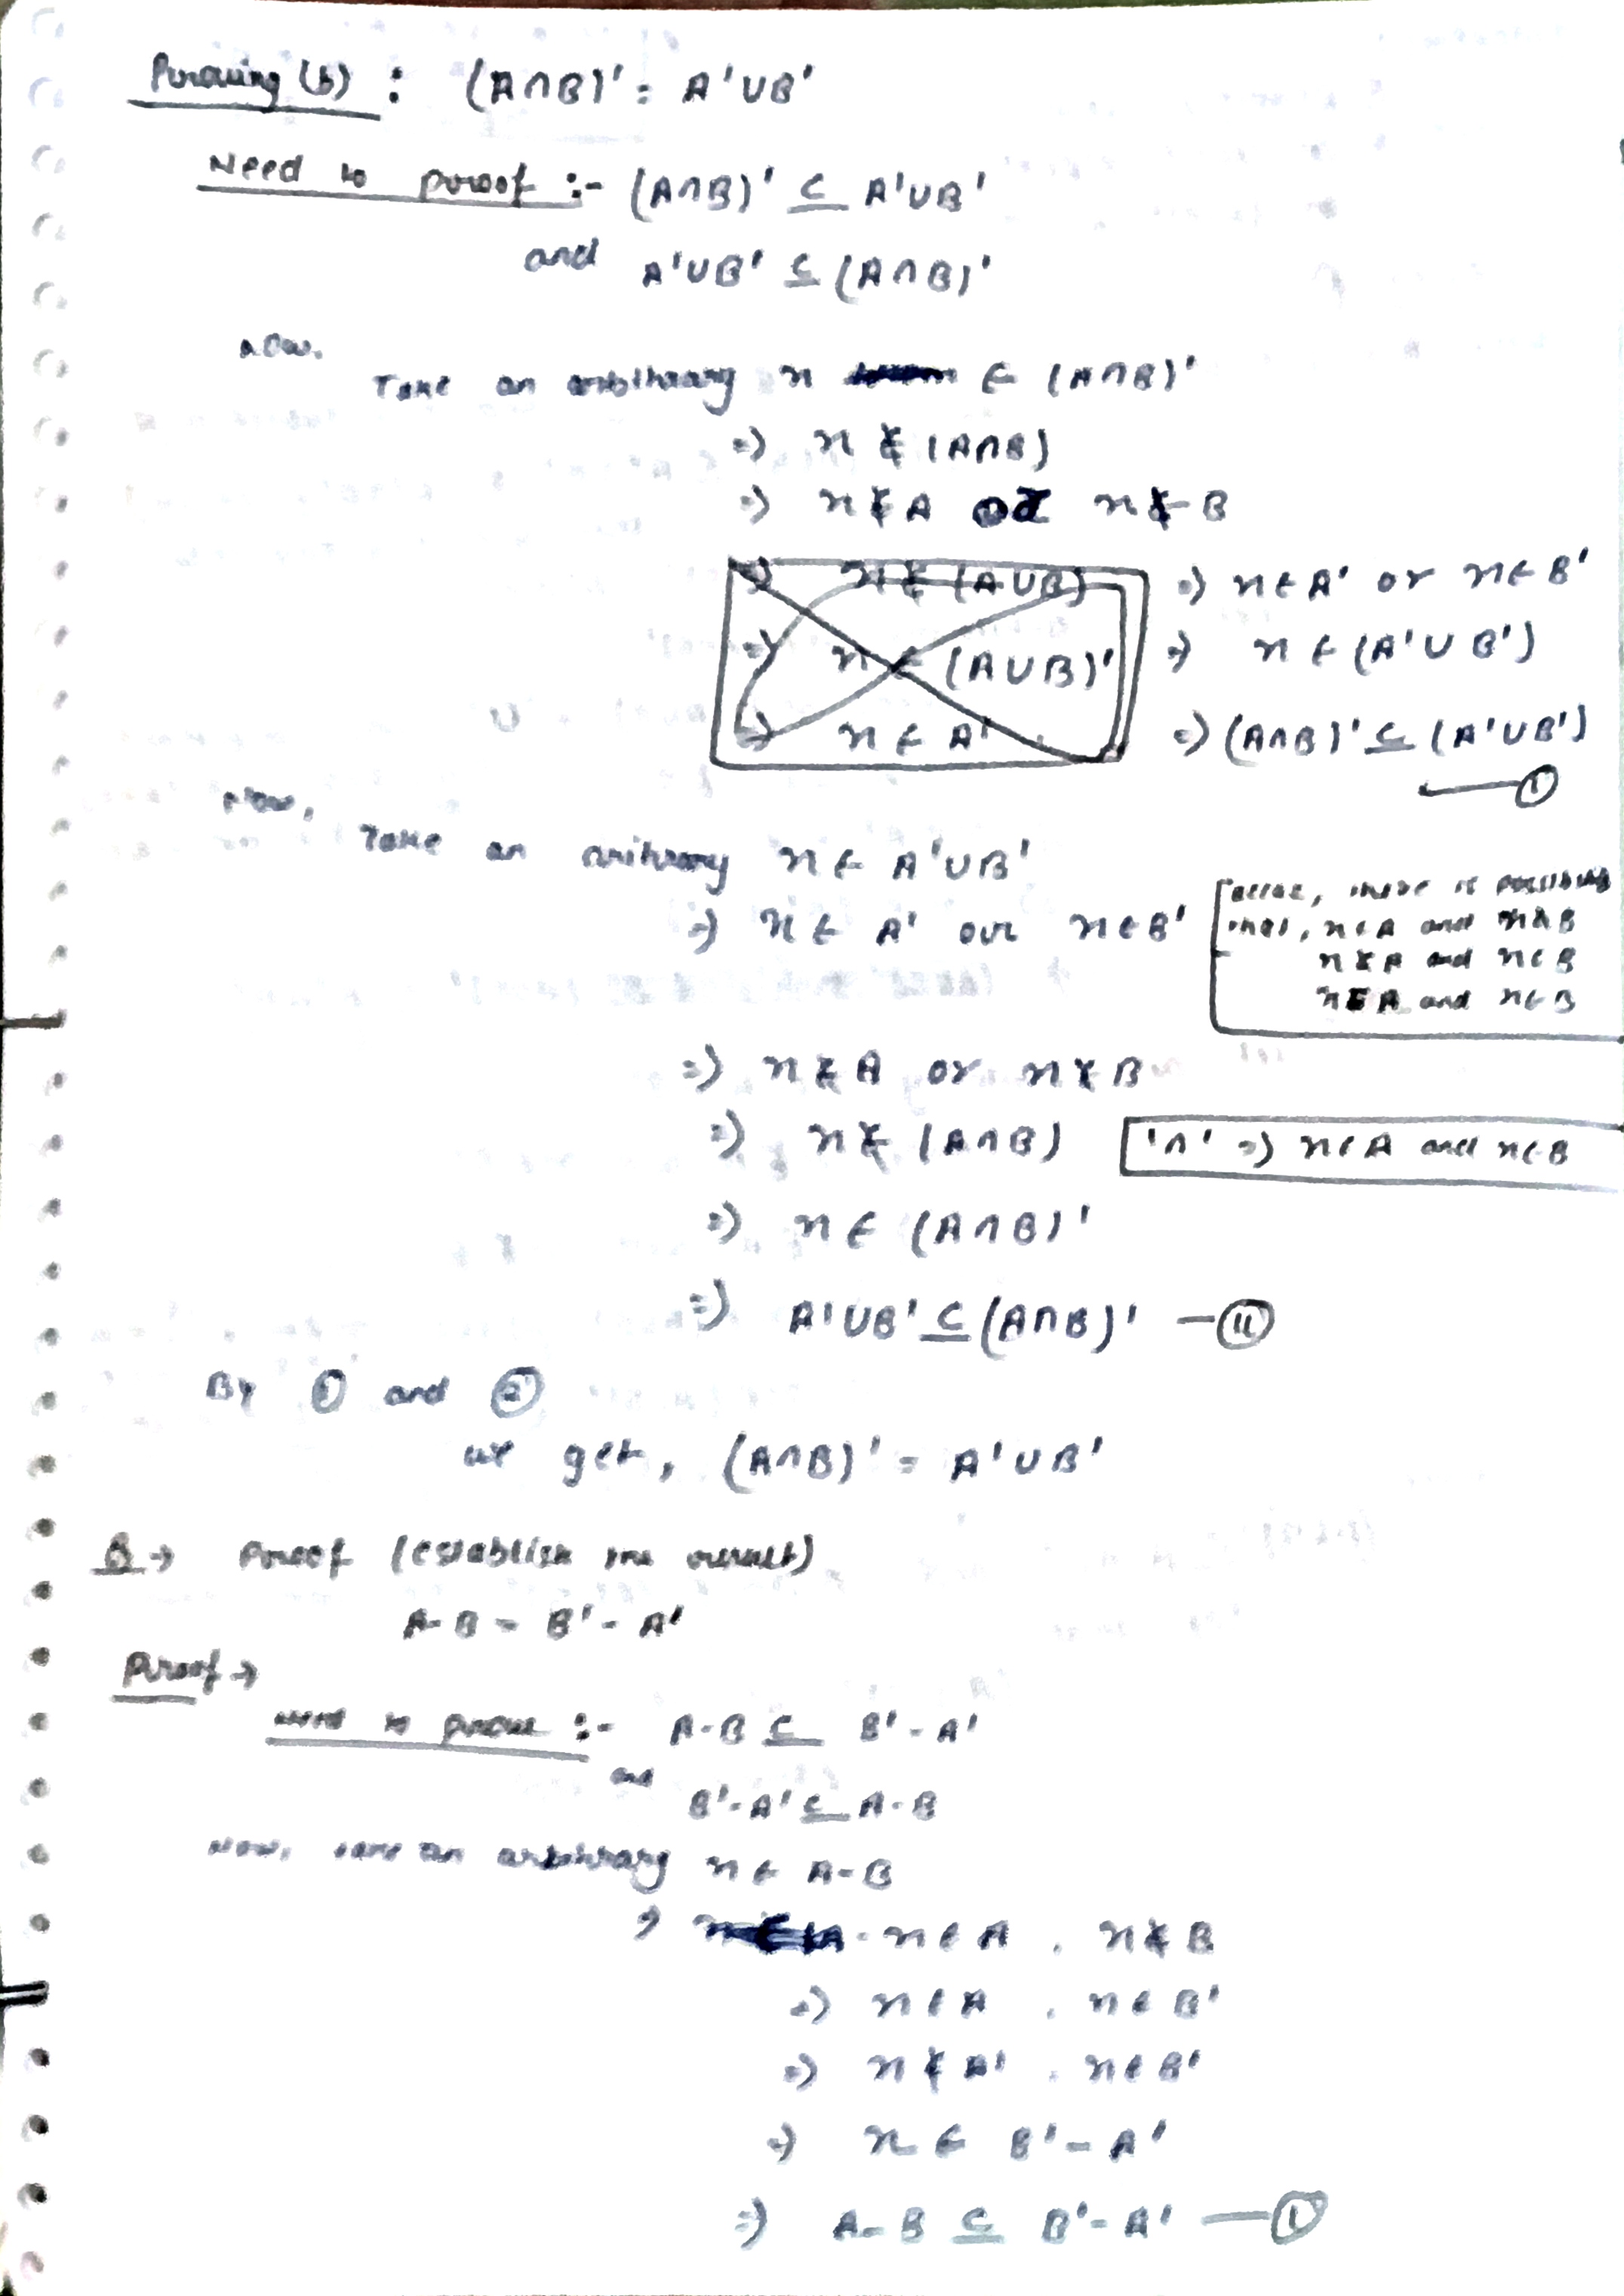 Proving (b) : (A∩B)' = A'∪B'
Need to proof :- (A∩B)' ⊆ A'∪B'
and A'∪B' ⊆ (A∩B)'
Now,
Take an arbitrary x ∈ (A∩B)'
=) x ∉ (A∩B)
=) x ∉ A or x ∉ B
=) x ∉ (A∪B) =) x ∈ A' or x ∈ B'
=) x ∈ (A∪B)' =) x ∈ (A'∪B')
=) x ∈ A' =) (A∩B)' ⊆ (A'∪B')
①
Now, Take an aribrary x ∈ A'∪B'
=) x ∈ A' or x ∈ B'
there is possible
that, x ∈ A and x ∉ B
x ∉ A and x ∈ B
and x ∈ B
=) x ∉ A or x ∉ B
=) x ∉ (A∩B) '∩' =) x ∈ A and x ∈ B
=) x ∈ (A∩B)'
=) A'∪B' ⊆ (A∩B)' — ⑪
By ① and ②
we get, (A∩B)' = A'∪B'
Q → Proof (establish the result)
A-B = B'-A'
Proof →
Need to prove :- A-B ⊆ B'-A'
and
B'-A' ⊆ A-B
Now, take an arbitrary x ∈ A-B
x ∈ A , x ∉ B
=) x ∈ A , x ∈ B'
=) x ∉ A' , x ∈ B'
=) x ∈ B'-A'
=) A-B ⊆ B'-A' — ①